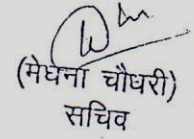 (मेघना चौधरी)
सचिव